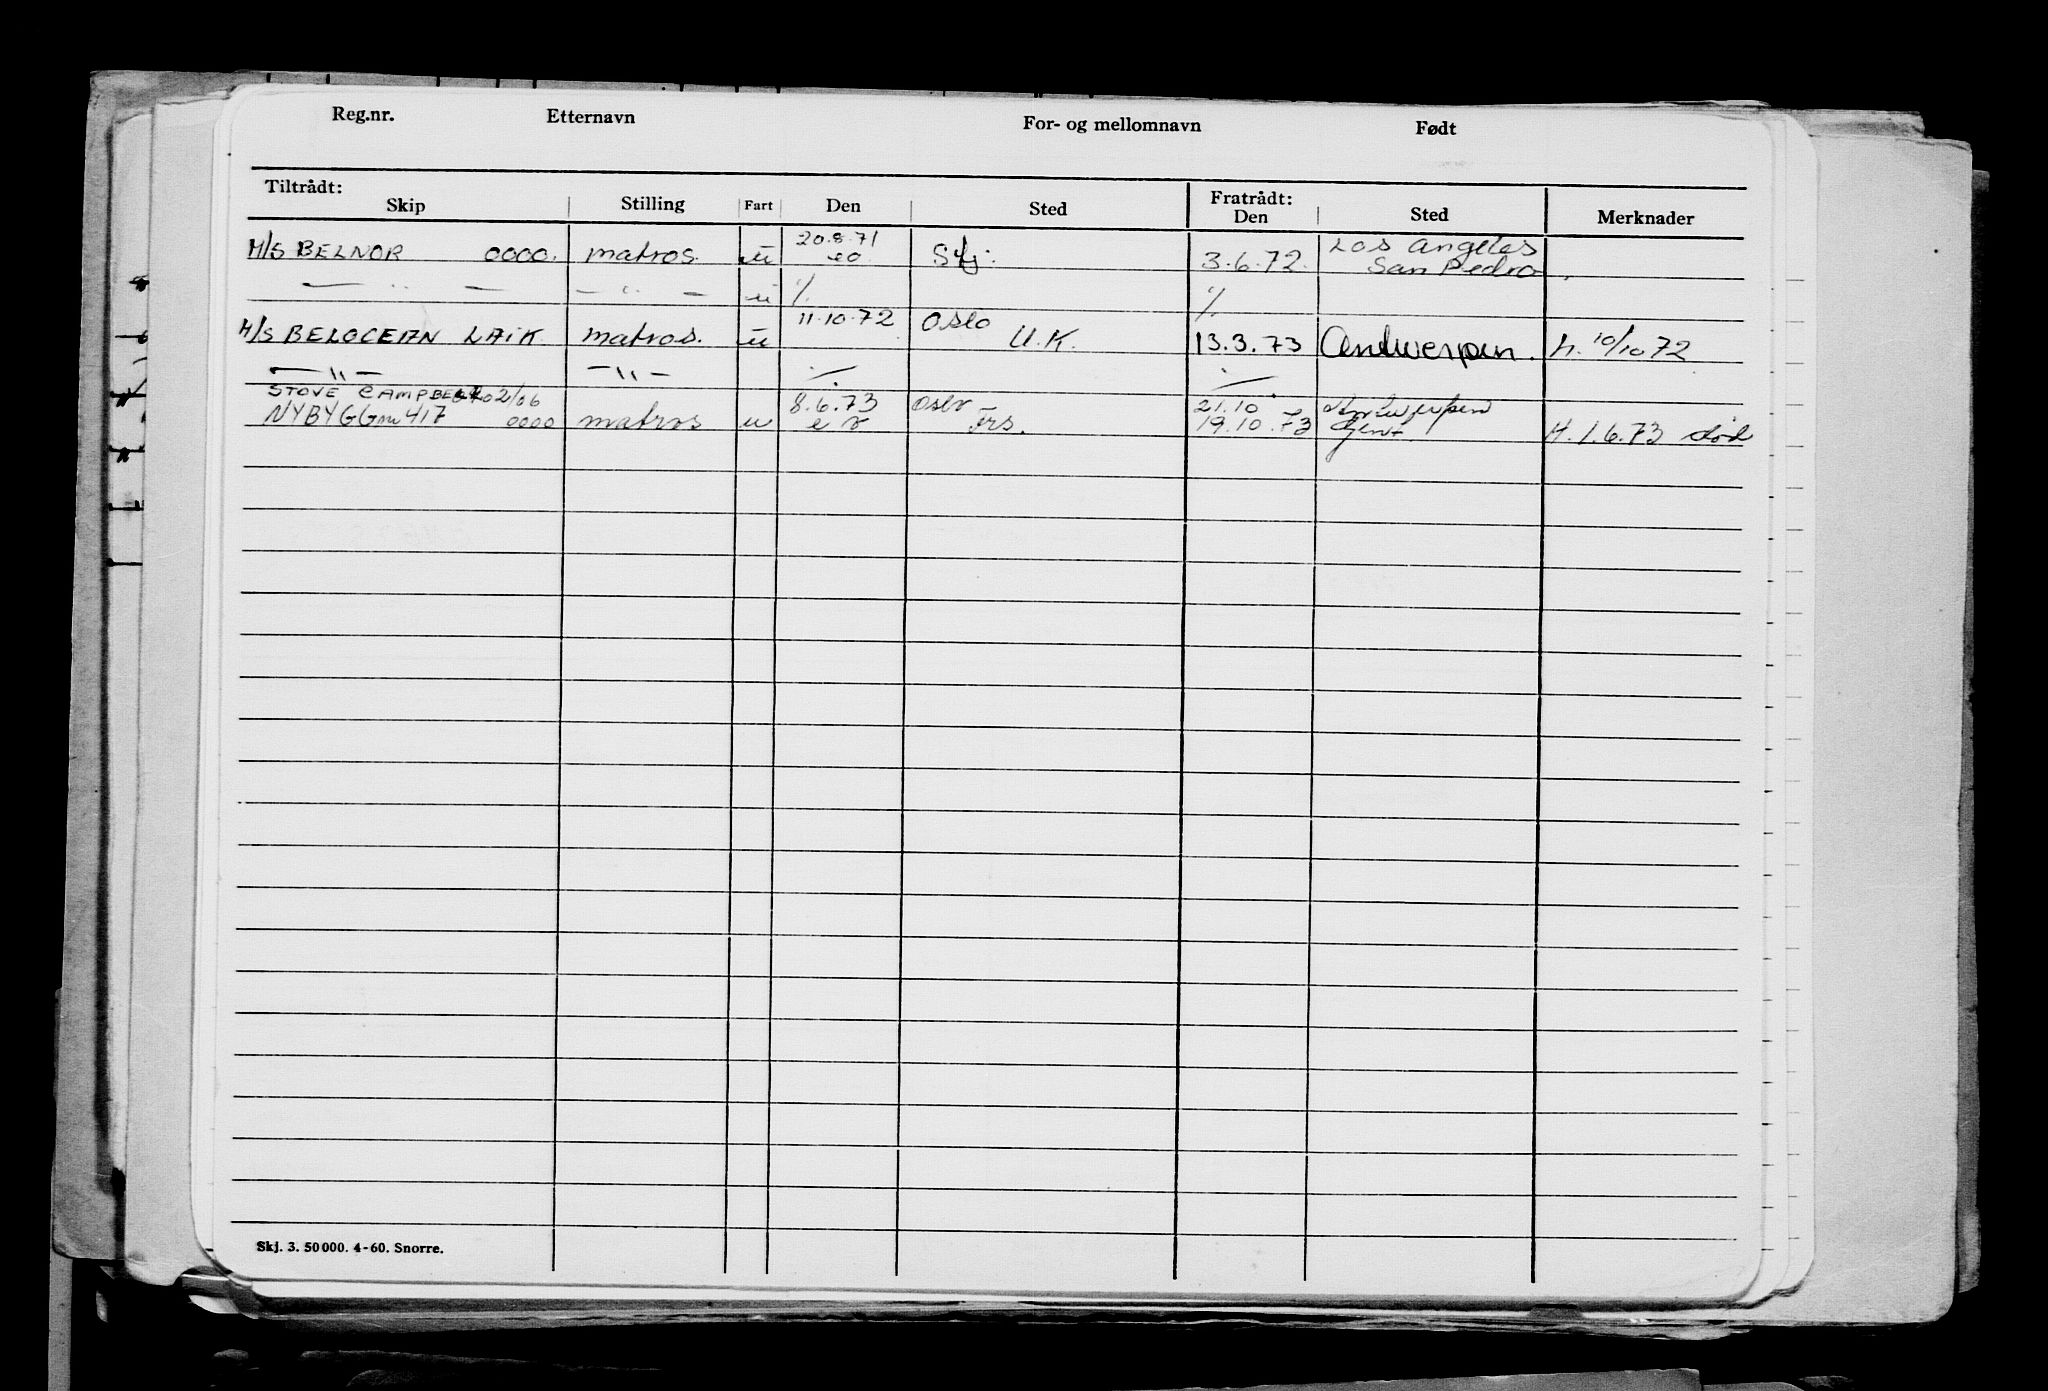 Reg.nr. Etternavn For- og mellomnavn Født
Tiltrådt: Fratrådt:
Skip Stilling Fart Den Sted Den Sted Merknader
M/S BELNOR 0000. matros. u 20.8.71 eo Sfj. 3.6.72. Los Angeles San Pedro
— " — — " — u % %
M/S BELOCEAN LAIK matros. u 11.10.72 Oslo U.K. 13.3.73 Antwerpen. h. 10/10 72
— " — — " — ./. ./.
STOVE CAMPBELL 02/06 8.6.73 Oslo 21.10 Antwerpen
NYBYGG nr 417 0000 matros u Frs. 19.10.73 Gent H. 1.6.73
Skj. 3. 50 000. 4-60. Snorre.